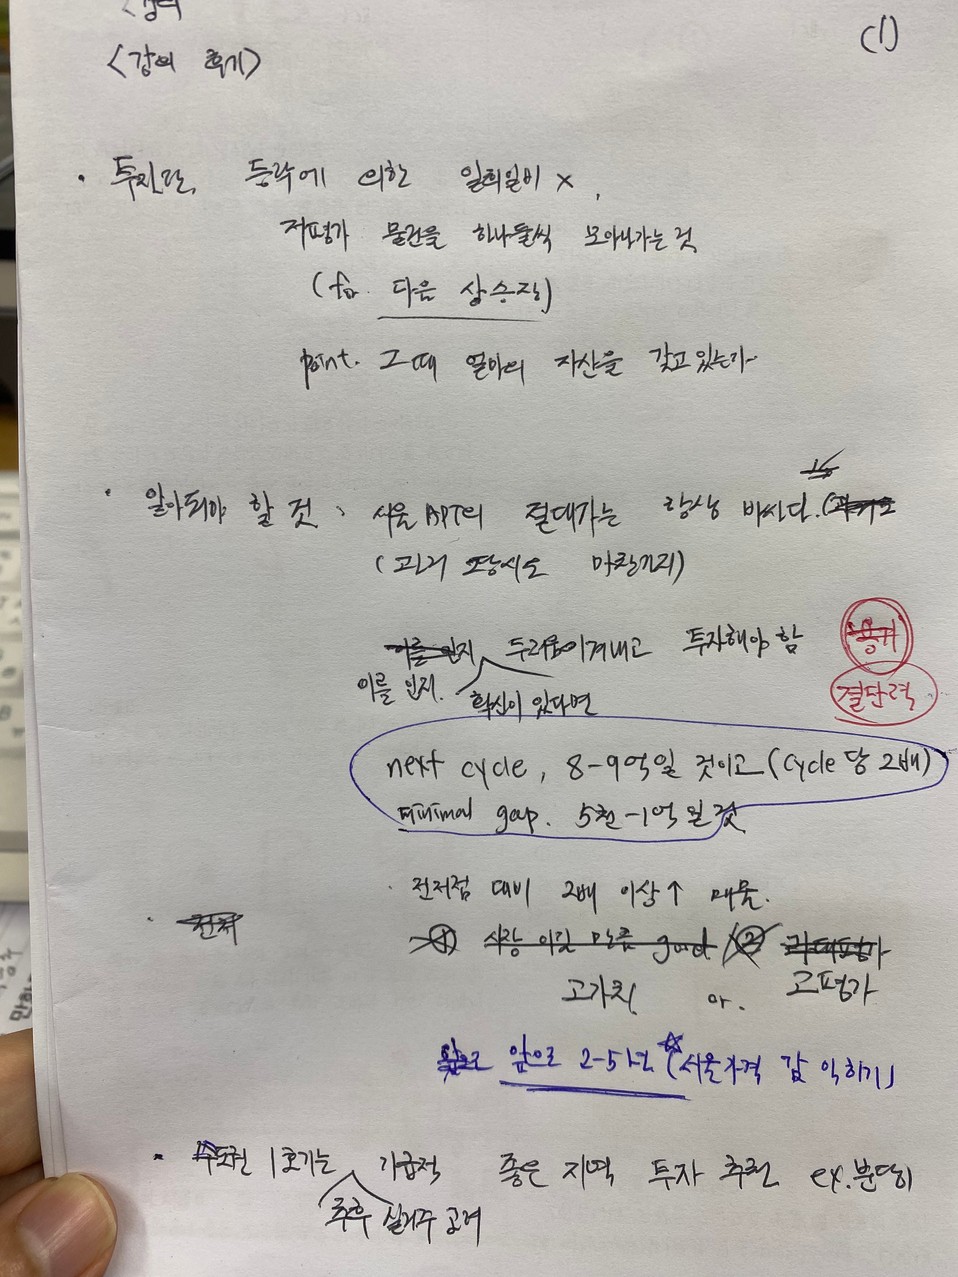 (1)
<강의 후기>
· 투자란, 등락에 의한 일희일비 x,
저평가 물건을 하나둘씩 모아나가는 것
(for 다음 상승장)
point. 그때 얼마의 자산을 갖고 있는가
· 알아둬야 할 것, 서울 APT의 절대가는 항상 비싸다.
(과거 당시도 마찬가지)
두려움 이겨내고 투자해야 함 용기
이를 인지. 확신이 있다면 결단력
next cycle, 8-9억일 것이고 (cycle 당 2배)
minimal gap. 5천-1억 일 것
· 전저점 대비 2배 이상↑ 매물.
고가치 or. 고평가
앞으로 2-5년 (☆서울가격 감 익히기)
· 수도권 1호기는 가급적 좋은 지역 투자 추천 ex.분당
추후 실거주 고려